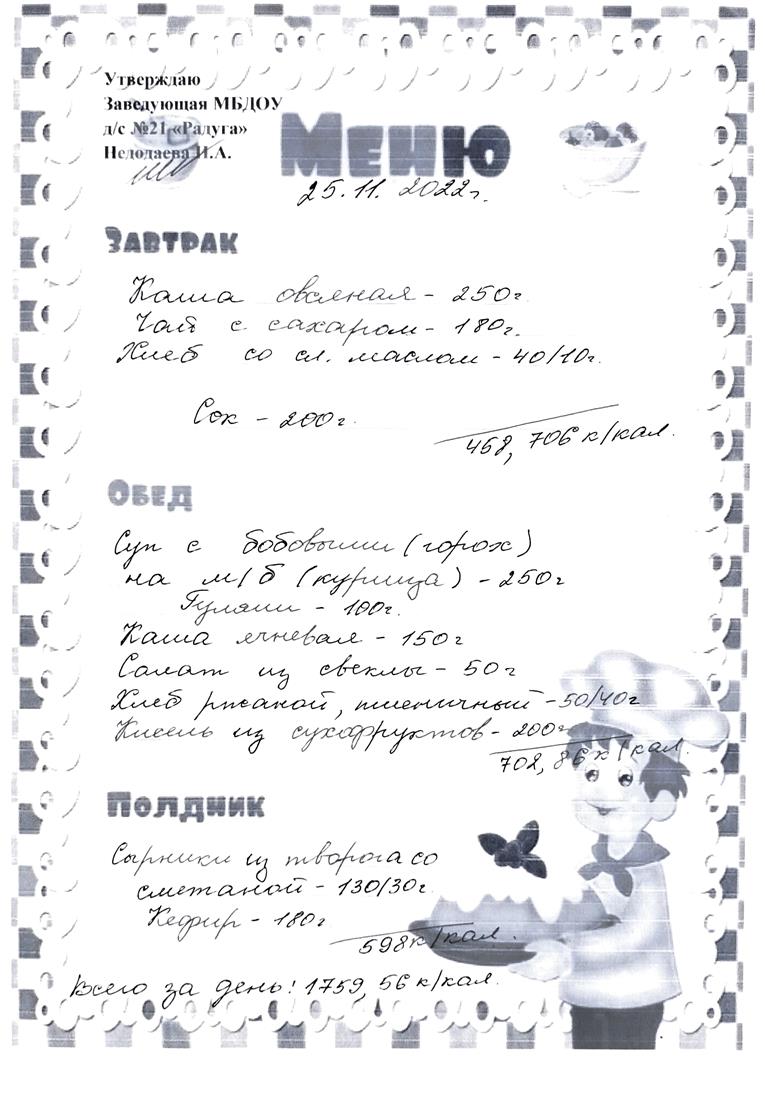 Утверждаю
Заведующая МБДОУ
д/с №21 «Радуга»
Недодаева И.А.
Меню
25.11.2022г.
Завтрак
Каша овсяная - 250г
Чай с сахаром - 180г.
Хлеб со сл. маслом - 40/10г.
Сок - 200г.
458, 706 к/кал.
Обед
Суп с бобовыми (горох)
на м/б (курица) - 250г
Гуляш - 100г.
Каша ячневая - 150г
Салат из свеклы - 50г
Хлеб ржаной, пшеничный - 50/40г
Кисель из сухофруктов - 200г
702, 86 к/кал.
Полдник
Сырники из творога со
сметаной - 130/30г.
Кефир - 180г
598 к/кал.
Всего за день: 1759, 56 к/кал.